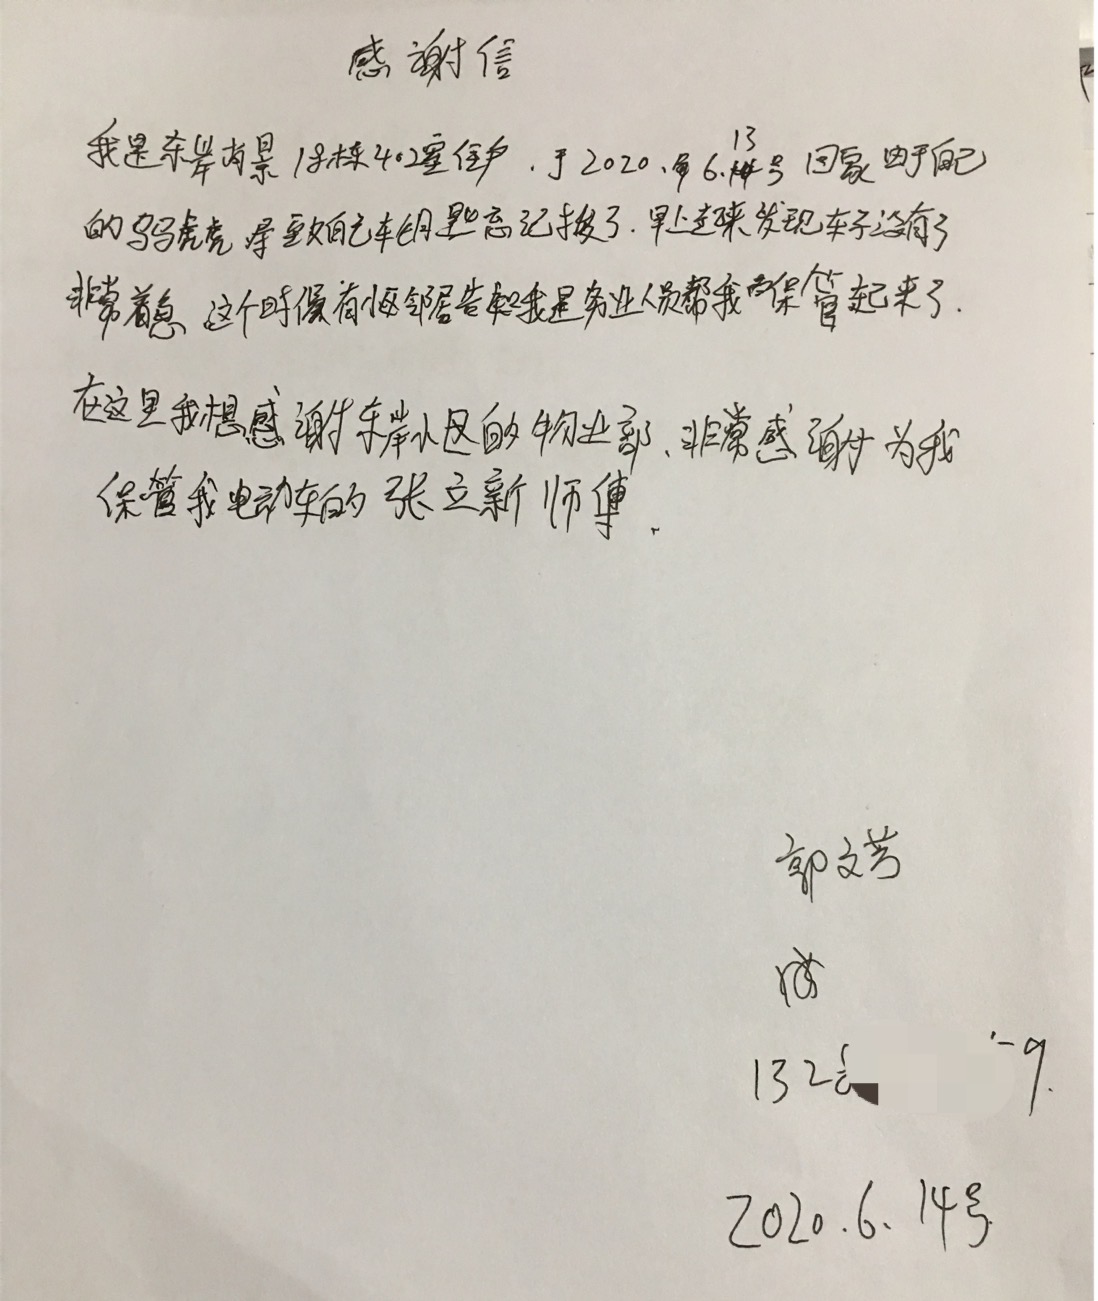 感谢信
我是东岸尚景1号栋402室住户.于2020.年6.13号回家由于自己
的马马虎虎导至致自己车钥匙忘记拔了.早上起来发现车子没有了
非常着急 这个时候有小区邻居告知我是务业人员帮我保管起来了.
在这里我想感谢东岸小区的物业部、非常感谢为我
保管我电动车的张立新师傅.
郭文芳
132 9.
2020.6.14号